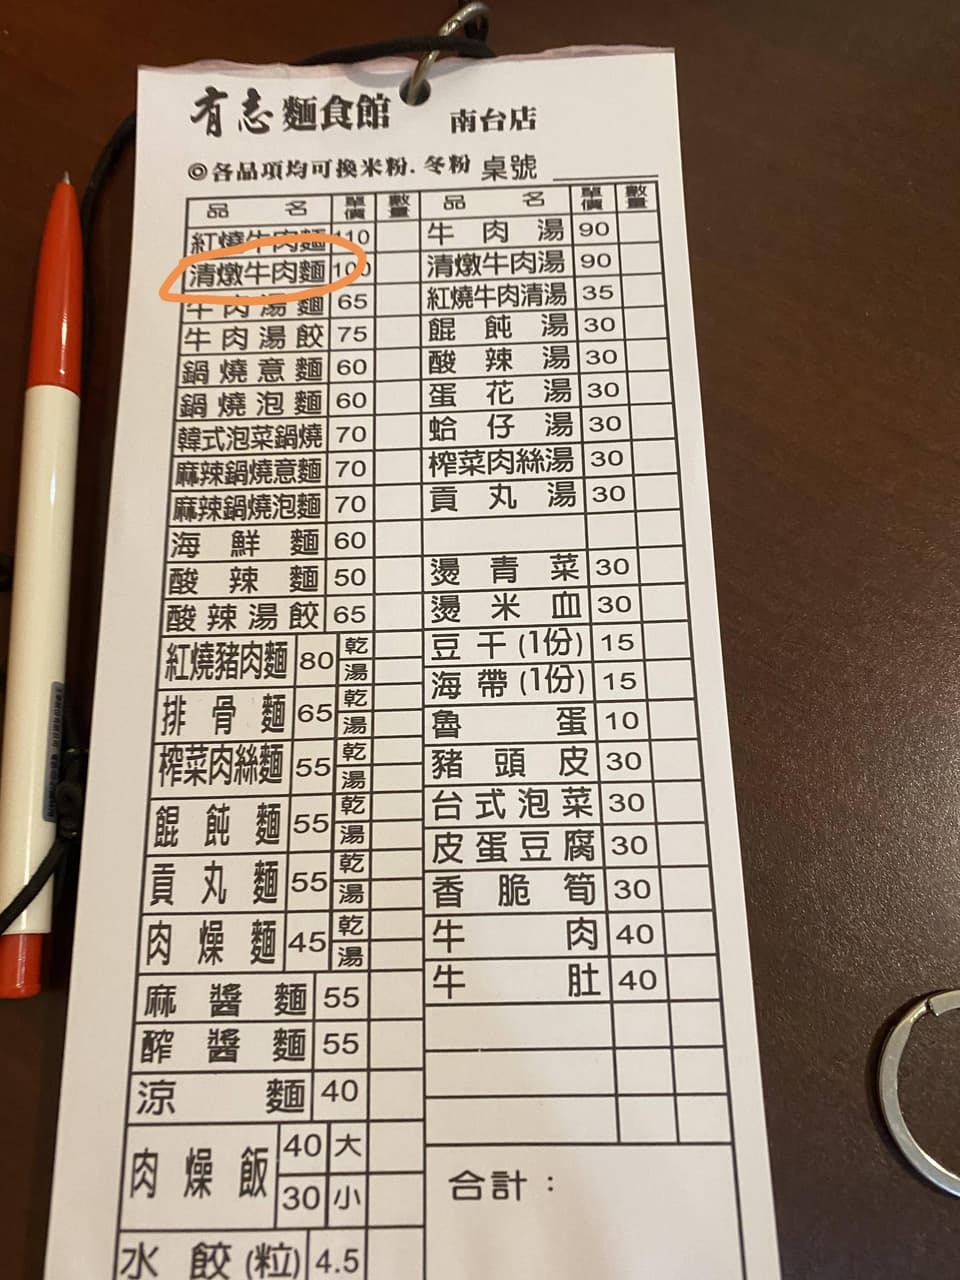 有志麵食館 南台店
◎各品項均可換米粉.冬粉 桌號
品名 單價 數量
紅燒牛肉麵 110
清燉牛肉麵 100
牛肉湯麵 65
牛肉湯餃 75
鍋燒意麵 60
鍋燒泡麵 60
韓式泡菜鍋燒 70
麻辣鍋燒意麵 70
麻辣鍋燒泡麵 70
海鮮麵 60
酸辣麵 50
酸辣湯餃 65
紅燒豬肉麵 80 乾 湯
排骨麵 65 乾 湯
榨菜肉絲麵 55 乾 湯
餛飩麵 55 乾 湯
貢丸麵 55 乾 湯
肉燥麵 45 乾 湯
麻醬麵 55
醡醬麵 55
涼麵 40
肉燥飯 40 大
30 小
水餃(粒) 4.5
品名 單價 數量
牛肉湯 90
清燉牛肉湯 90
紅燒牛肉清湯 35
餛飩湯 30
酸辣湯 30
蛋花湯 30
蛤仔湯 30
榨菜肉絲湯 30
貢丸湯 30
燙青菜 30
燙米血 30
豆干(1份) 15
海帶(1份) 15
魯蛋 10
豬頭皮 30
台式泡菜 30
皮蛋豆腐 30
香脆筍 30
牛肉 40
牛肚 40
合計：